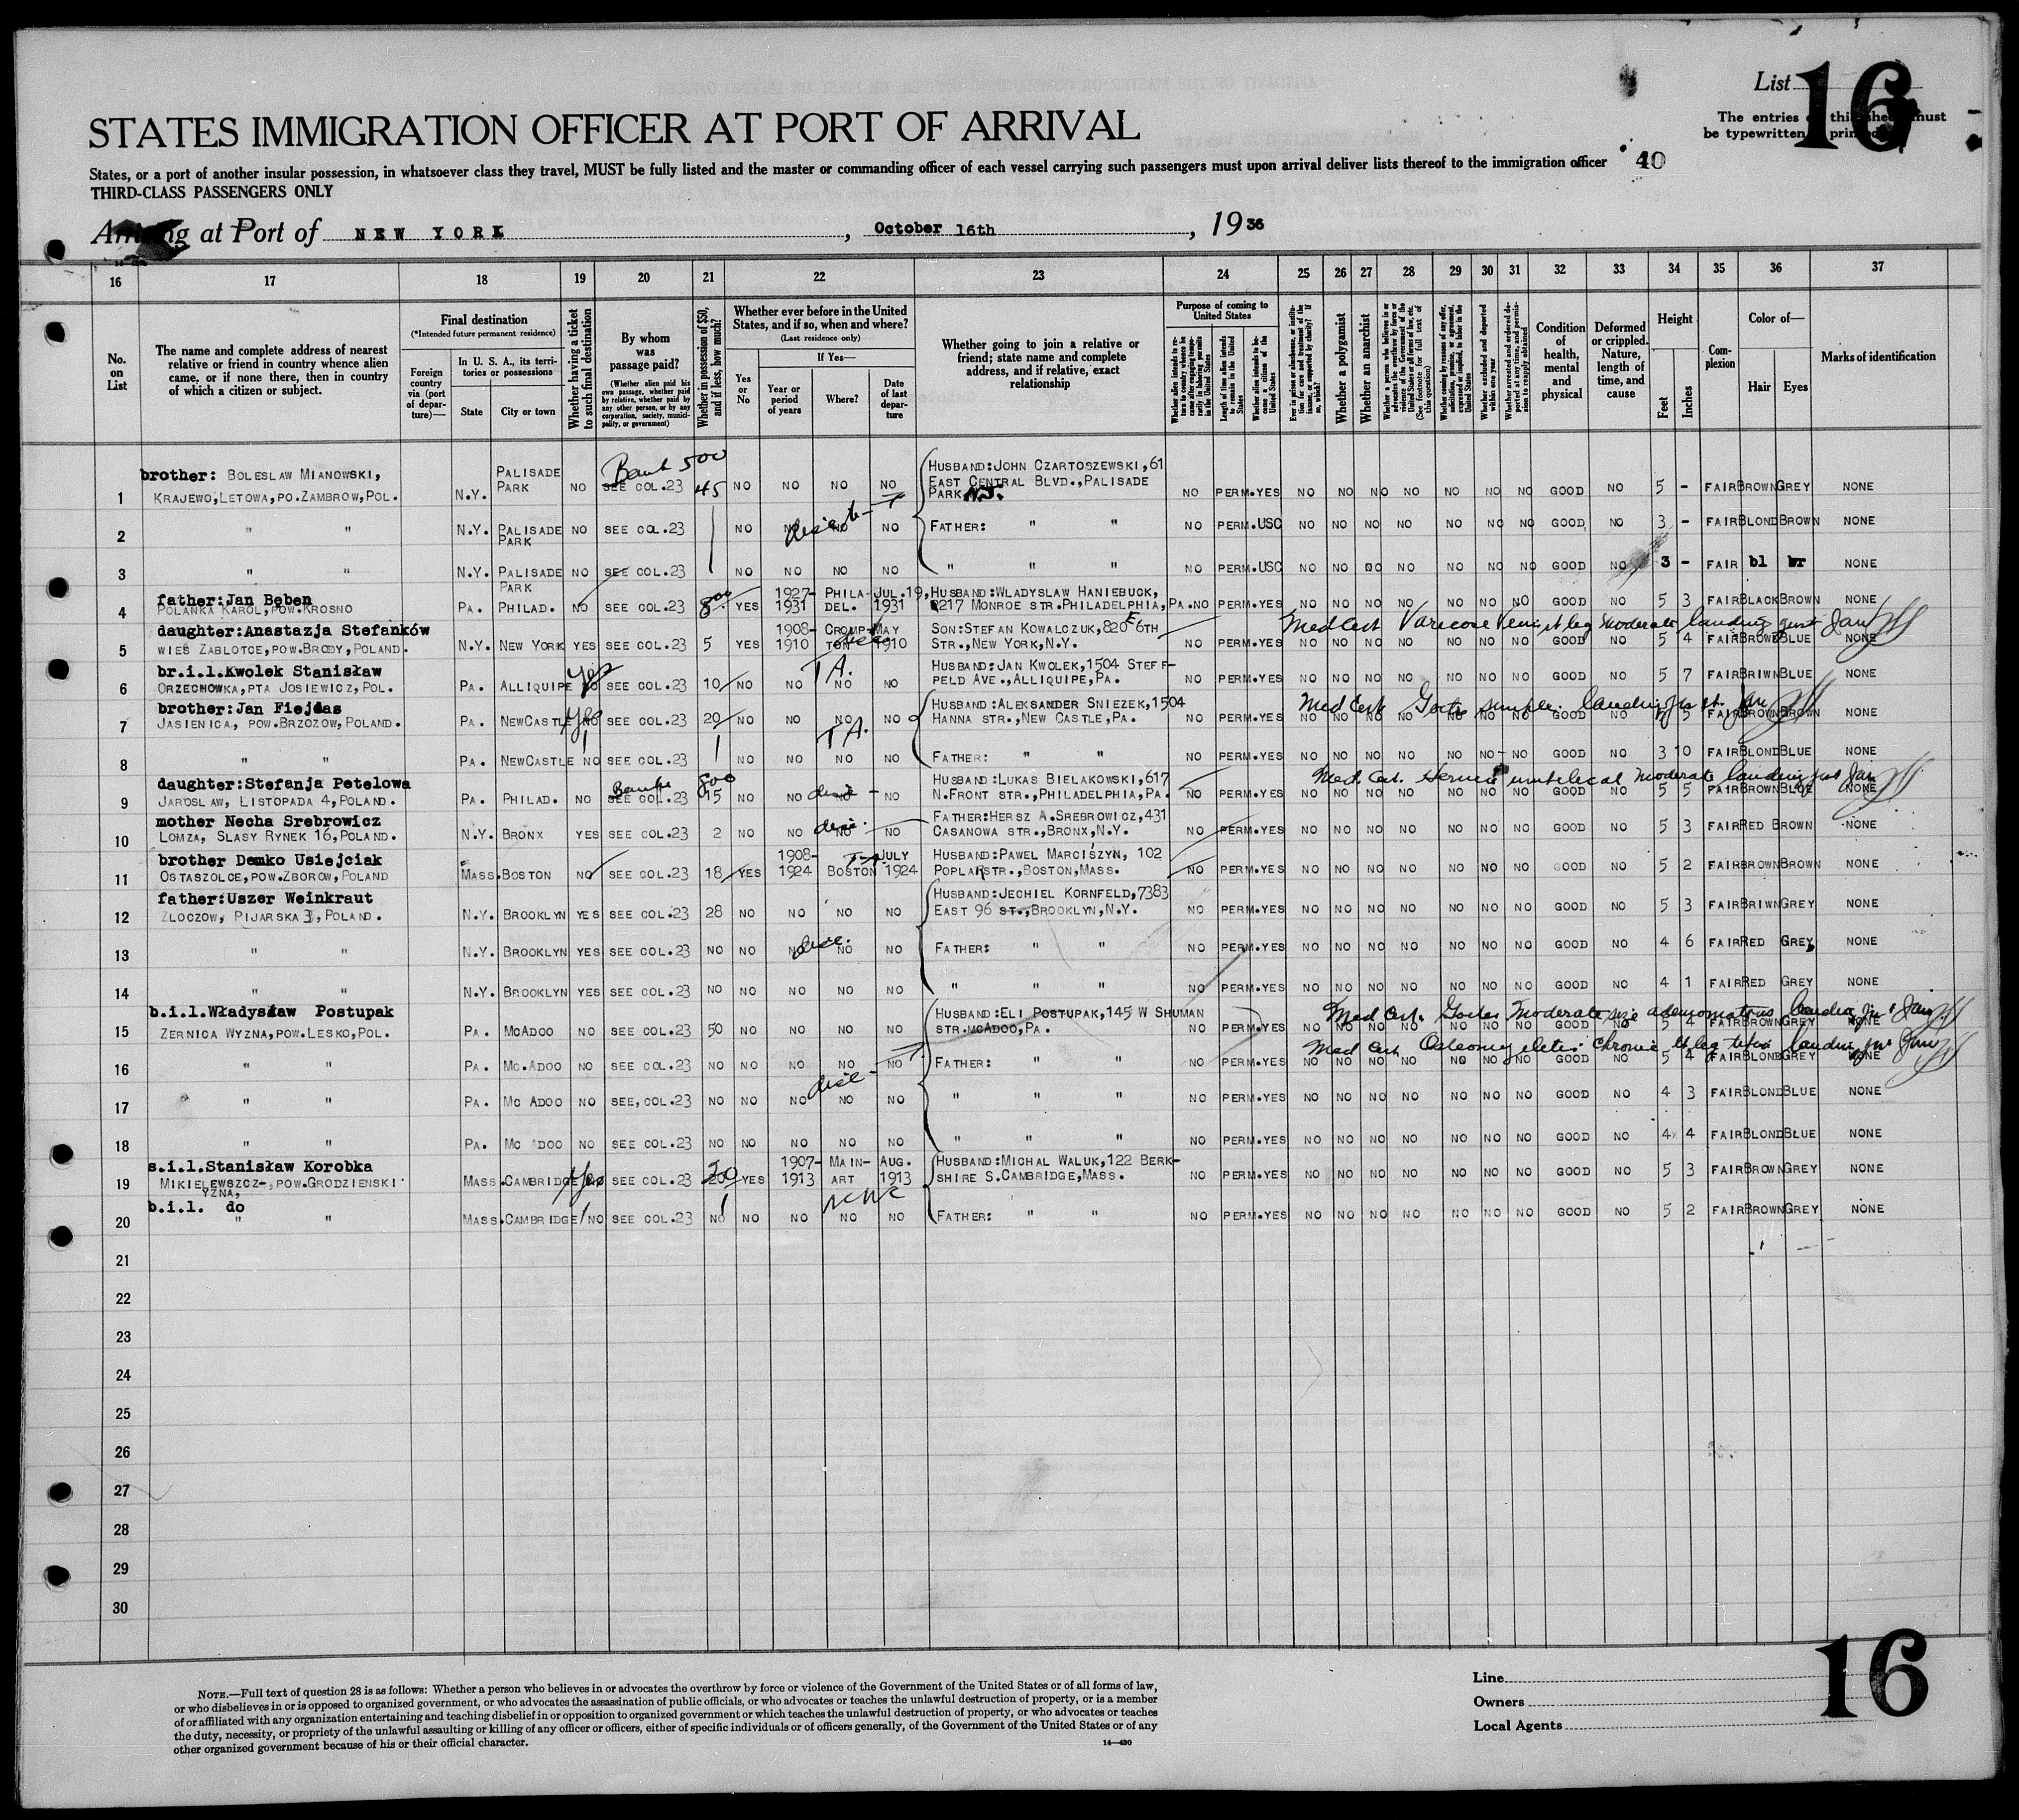 List 16
The entries on this sheet must
be typewritten or printed
STATES IMMIGRATION OFFICER AT PORT OF ARRIVAL
States, or a port of another insular possession, in whatsoever class they travel, MUST be fully listed and the master or commanding officer of each vessel carrying such passengers must upon arrival deliver lists thereof to the immigration officer
40
THIRD-CLASS PASSENGERS ONLY
Arriving at Port of NEW YORK, October 16th, 1936
16 17 18 19 20 21 22 23 24 25 26 27 28 29 30 31 32 33 34 35 36 37
No. on List
The name and complete address of nearest relative or friend in country whence alien came, or if none there, then in country of which a citizen or subject.
Final destination
(*Intended future permanent residence)
Foreign country via (port of departure)—
In U. S. A., its territories or possessions
State
City or town
Whether having a ticket to such final destination
By whom was passage paid?
(Whether alien paid his own passage, whether paid by relative, whether paid by any other person, or by any corporation, society, municipality, or government)
Whether in possession of $50, and if less, how much?
Whether ever before in the United States, and if so, when and where?
(Last residence only)
Yes or No
If Yes—
Year or period of years
Where?
Date of last departure
Whether going to join a relative or friend; state name and complete address, and if relative, exact relationship
Purpose of coming to United States
Length of time alien intends to remain in the United States
Whether alien intends to become a citizen of the United States
Whether a polygamist
Whether an anarchist
Whether excluded and deported within one year
Condition of health, mental and physical
Deformed or crippled. Nature, length of time, and cause
Height
Feet
Inches
Complexion
Color of—
Hair
Eyes
Marks of identification
1 brother: BOLESLAW MIANOWSKI, KRAJEWO, LETOWA, PO. ZAMBROW, POL. N.Y. PALISADE PARK NO SEE COL.23 Bank 500 45 NO NO NO NO HUSBAND: JOHN CZARTOSZEWSKI, 61 EAST CENTRAL BLVD., PALISADE PARK N.J. NO PERM. YES NO NO NO NO NO NO NO GOOD NO 5 - FAIR BROWN GREY NONE
2 " " N.Y. PALISADE PARK NO SEE COL.23 NO NO NO NO FATHER: " " NO PERM. USC NO NO NO NO NO NO NO GOOD NO 3 - FAIR BLOND BROWN NONE
3 " " N.Y. PALISADE PARK NO SEE COL.23 NO NO NO NO " " " NO PERM. USC NO NO NO NO NO NO NO GOOD NO 3 - FAIR bl br NONE
4 father: Jan Bęben POLANKA KAROL, POW. KROSNO PA. PHILAD. NO SEE COL.23 8 YES 1927-1931 PHILA-DEL. JUL. 19, 1931 HUSBAND: WLADYSLAW HANIEBUCK, 2217 MONROE STR. PHILADELPHIA, PA. NO PERM. YES NO NO NO NO NO NO NO GOOD NO 5 3 FAIR BLACK BROWN NONE
5 daughter: Anastazja Stefanków WIEŚ ZABLOTCE, POW. BRODY, POLAND. N.Y. NEW YORK YES SEE COL.23 5 YES 1908-1910 CROMP-TON MAY 1910 SON: STEFAN KOWALCZUK, 820 E 6TH STR., NEW YORK, N.Y. NO PERM. YES NO NO NO NO NO NO NO GOOD NO 5 4 FAIR BROWN BLUE NONE
Med Cert Varicose Veins
6 br.i.l. Kwolek Stanisław ORZECHOWKA, PTA JOSIEWICZ, POL. PA. ALLIQUIPE NO yes SEE COL.23 10 NO NO NO NO T A. HUSBAND: JAN KWOLEK, 1504 STEFFPELD AVE., ALLIQUIPE, PA. NO PERM. YES NO NO NO NO NO NO NO GOOD NO 5 7 FAIR BRIWN BLUE NONE
7 brother: Jan Fiejdas JASIENICA, POW. BRZOZOW, POLAND. PA. NEWCASTLE NO yes SEE COL.23 20 NO NO NO NO HUSBAND: ALEKSANDER SNIEZEK, 1504 HANNA STR., NEW CASTLE, PA. NO PERM. YES NO NO NO NO NO NO NO GOOD NO 5 FAIR BROWN BROWN NONE
Med Cert Goitre simple
8 " " PA. NEWCASTLE NO SEE COL.23 NO NO NO NO T A. FATHER: " " NO PERM. YES NO NO NO NO NO NO NO GOOD NO 3 10 FAIR BLOND BLUE NONE
9 daughter: Stefanja Petelowa JAROSLAW, LISTOPADA 4, POLAND. PA. PHILAD. NO SEE COL.23 Bank 500 15 NO NO NO NO HUSBAND: LUKAS BIELAKOWSKI, 617 N. FRONT STR., PHILADELPHIA, PA. NO PERM. YES NO NO NO NO NO NO NO GOOD NO 5 5 FAIR BROWN BLUE NONE
Med Cert. Hernia umbilical moderate
10 mother Necha Srebrowicz LOMZA, SLASY RYNEK 16, POLAND. N.Y. BRONX YES SEE COL.23 2 NO NO NO NO FATHER: HERSZ A. SREBROWICZ, 431 CASANOWA STR., BRONX, N.Y. NO PERM. YES NO NO NO NO NO NO NO GOOD NO 5 3 FAIR RED BROWN NONE
11 brother Demko Usiejciak OSTASZOLCE, POW. ZBOROW, POLAND MASS. BOSTON NO SEE COL.23 18 YES 1908-1924 BOSTON JULY 1924 HUSBAND: PAWEL MARCISZYN, 102 POPLAR STR., BOSTON, MASS. NO PERM. YES NO NO NO NO NO NO NO GOOD NO 5 2 FAIR BROWN BROWN NONE
12 father: Uszer Weinkraut ZLOCZOW, PIJARSKA 3, POLAND. N.Y. BROOKLYN YES SEE COL.23 28 NO NO NO NO HUSBAND: JECHIEL KORNFELD, 7383 EAST 96 ST., BROOKLYN, N.Y. NO PERM. YES NO NO NO NO NO NO NO GOOD NO 5 3 FAIR BRIWN GREY NONE
13 " " N.Y. BROOKLYN YES SEE COL.23 NO NO NO NO NO FATHER: " " NO PERM. YES NO NO NO NO NO NO NO GOOD NO 4 6 FAIR RED GREY NONE
14 " " N.Y. BROOKLYN YES SEE COL.23 NO NO NO NO NO " " " NO PERM. YES NO NO NO NO NO NO NO GOOD NO 4 1 FAIR RED GREY NONE
15 b.i.l. Władysław Postupak ZERNICA WYZNA, POW. LESKO, POL. PA. MCADOO NO SEE COL.23 50 NO NO NO NO HUSBAND: ELI POSTUPAK, 145 W SHUMAN STR. MCADOO, PA. NO PERM. YES NO NO NO NO NO NO NO GOOD NO 5 4 FAIR BROWN GREY NONE
Med Cert. Goitre Moderate size adenomatous
16 " " PA. MC. ADOO NO SEE COL.23 NO NO NO NO NO FATHER: " " NO PERM. YES NO NO NO NO NO NO NO GOOD NO 5 4 FAIR BLOND GREY NONE
Med Cert Osteomyelitis Chronic
17 " " PA. MC ADOO NO SEE, COL.23 NO NO NO NO NO " " " NO PERM. YES NO NO NO NO NO NO NO GOOD NO 4 3 FAIR BLOND BLUE NONE
18 " " PA. MC ADOO NO SEE COL.23 NO NO NO NO NO " " " NO PERM. YES NO NO NO NO NO NO NO GOOD NO 4 4 FAIR BLOND BLUE NONE
19 s.i.l. Stanisław Korobka MIKIELEWSZCZ-YZNA, POW. GRODZIENSKI MASS. CAMBRIDGE yes SEE COL.23 20 YES 1907-1913 MAIN-ART AUG. 1913 HUSBAND: MICHAL WALUK, 122 BERKSHIRE S. CAMBRIDGE, MASS. NO PERM. YES NO NO NO NO NO NO NO GOOD NO 5 3 FAIR BROWN GREY NONE
20 b.i.l. do " " MASS. CAMBRIDGE NO SEE COL.23 NO NO NO NO NO FATHER: " " NO PERM. YES NO NO NO NO NO NO NO GOOD NO 5 2 FAIR BROWN GREY NONE
21
22
23
24
25
26
27
28
29
30
NOTE.—Full text of question 28 is as follows: Whether a person who believes in or advocates the overthrow by force or violence of the Government of the United States or of all forms of law,
or who disbelieves in or is opposed to organized government, or who advocates the assassination of public officials, or who advocates or teaches the unlawful destruction of property, or is a member
of or affiliated with any organization entertaining and teaching disbelief in or opposition to organized government or which teaches the unlawful destruction of property, or who advocates or teaches
the duty, necessity, or propriety of the unlawful assaulting or killing of any officer or officers, either of specific individuals or of officers generally, of the Government of the United States or of any
other organized government because of his or their official character.
14—430
Line
Owners
Local Agents
16